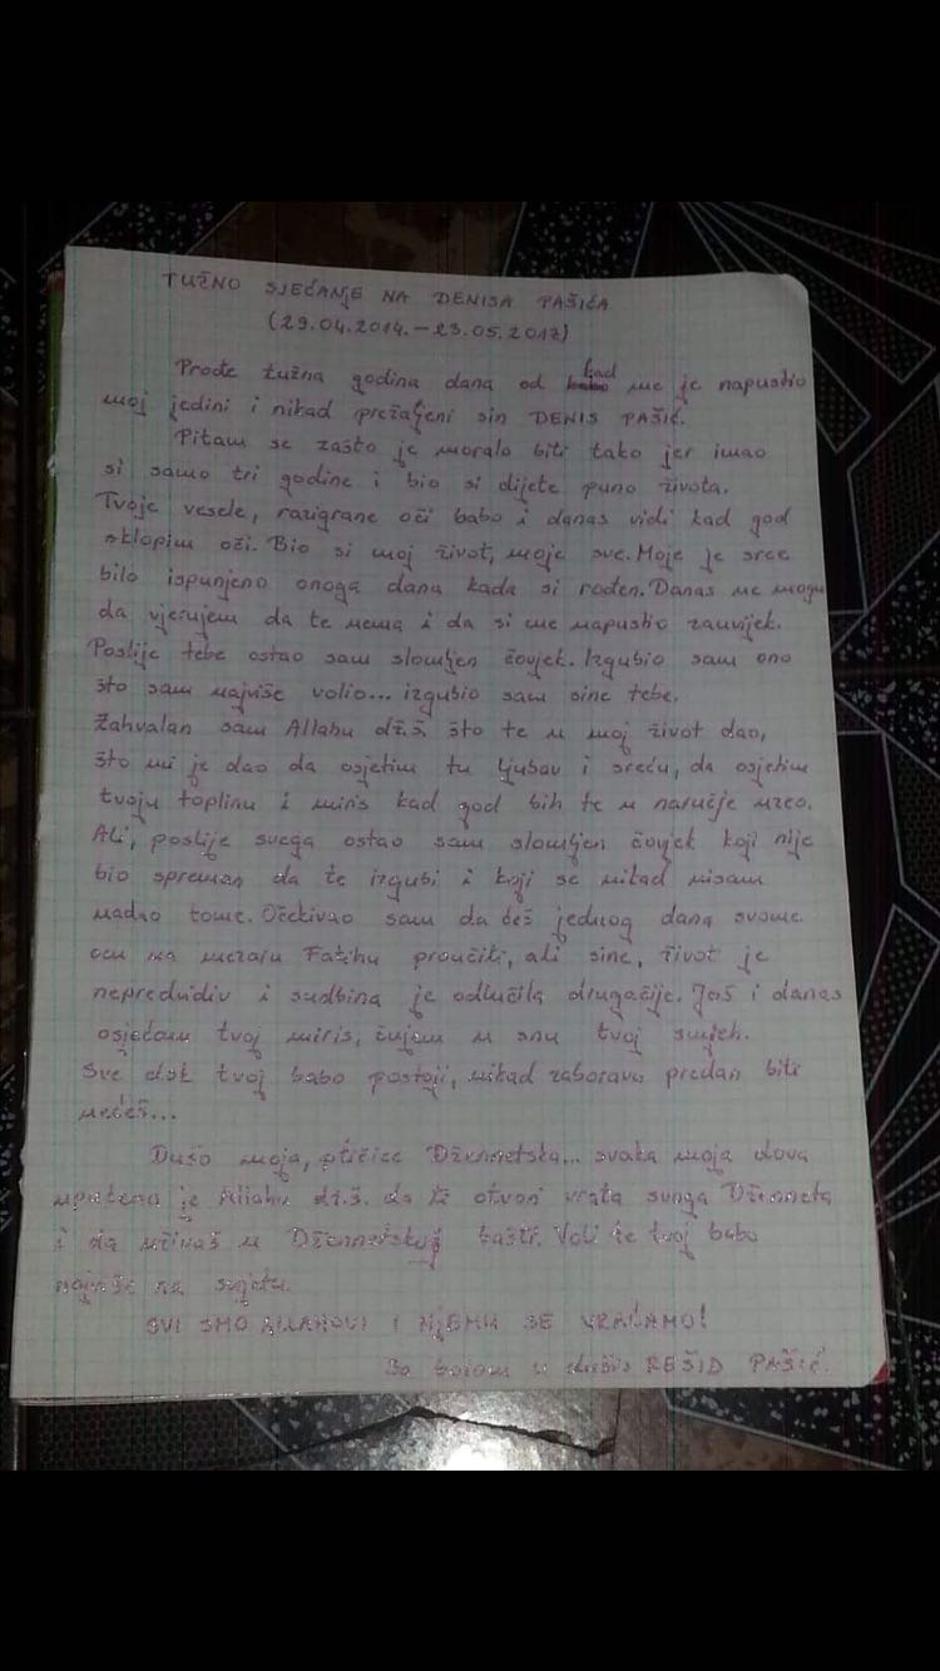 TUŽNO SJEĆANJE NA DENISA PAŠIĆA
(29.04.2014.-23.05.2017)
Prođe tužna godina dana od kad me je napustio
moj jedini i nikad prežaljeni sin DENIS PAŠIĆ.
Pitam se zašto je moralo biti tako jer imao
si samo tri godine i bio si dijete puno života.
Tvoje vesele, razigrane oči babo i danas vidi kad god
sklopim oči. Bio si moj život, moje sve. Moje je srce
bilo ispunjeno onoga dana kada si rođen. Danas ne mogu
da vjerujem da te nema i da si me napustio zauvijek.
Poslije tebe ostao sam slomljen čovjek. Izgubio sam ono
što sam najviše volio... izgubio sam sine tebe.
Zahvalan sam Allahu dž.š. što te u moj život dao,
što mi je dao da osjetim tu ljubav i sreću, da osjetim
tvoju toplinu i miris kad god bih te u naručje uzeo.
Ali, poslije svega ostao sam slomljen čovjek koji nije
bio spreman da te izgubi i koji se nikad nisam
nadao tome. Očekivao sam da ćeš jednog dana svome
ocu na mezaru Fatihu proučiti, ali sine, život je
nepredvidiv i sudbina je odlučila drugačije. Još i danas
osjećam tvoj miris, čujem u snu tvoj smijeh.
Sve dok tvoj babo postoji, nikad zaboravu predan biti
nećeš...
Dušo moja, ptičice Džennetska... svaka moja dova
upućena je Allahu dž.š. da ti otvori vrata svoga Dženneta
i da uživaš u Džennetskoj bašti. Voli te tvoj babo
najviše na svijetu.
SVI SMO ALLAHOVI I NJEMU SE VRAĆAMO!
Sa bolom u duši REŠID PAŠIĆ.